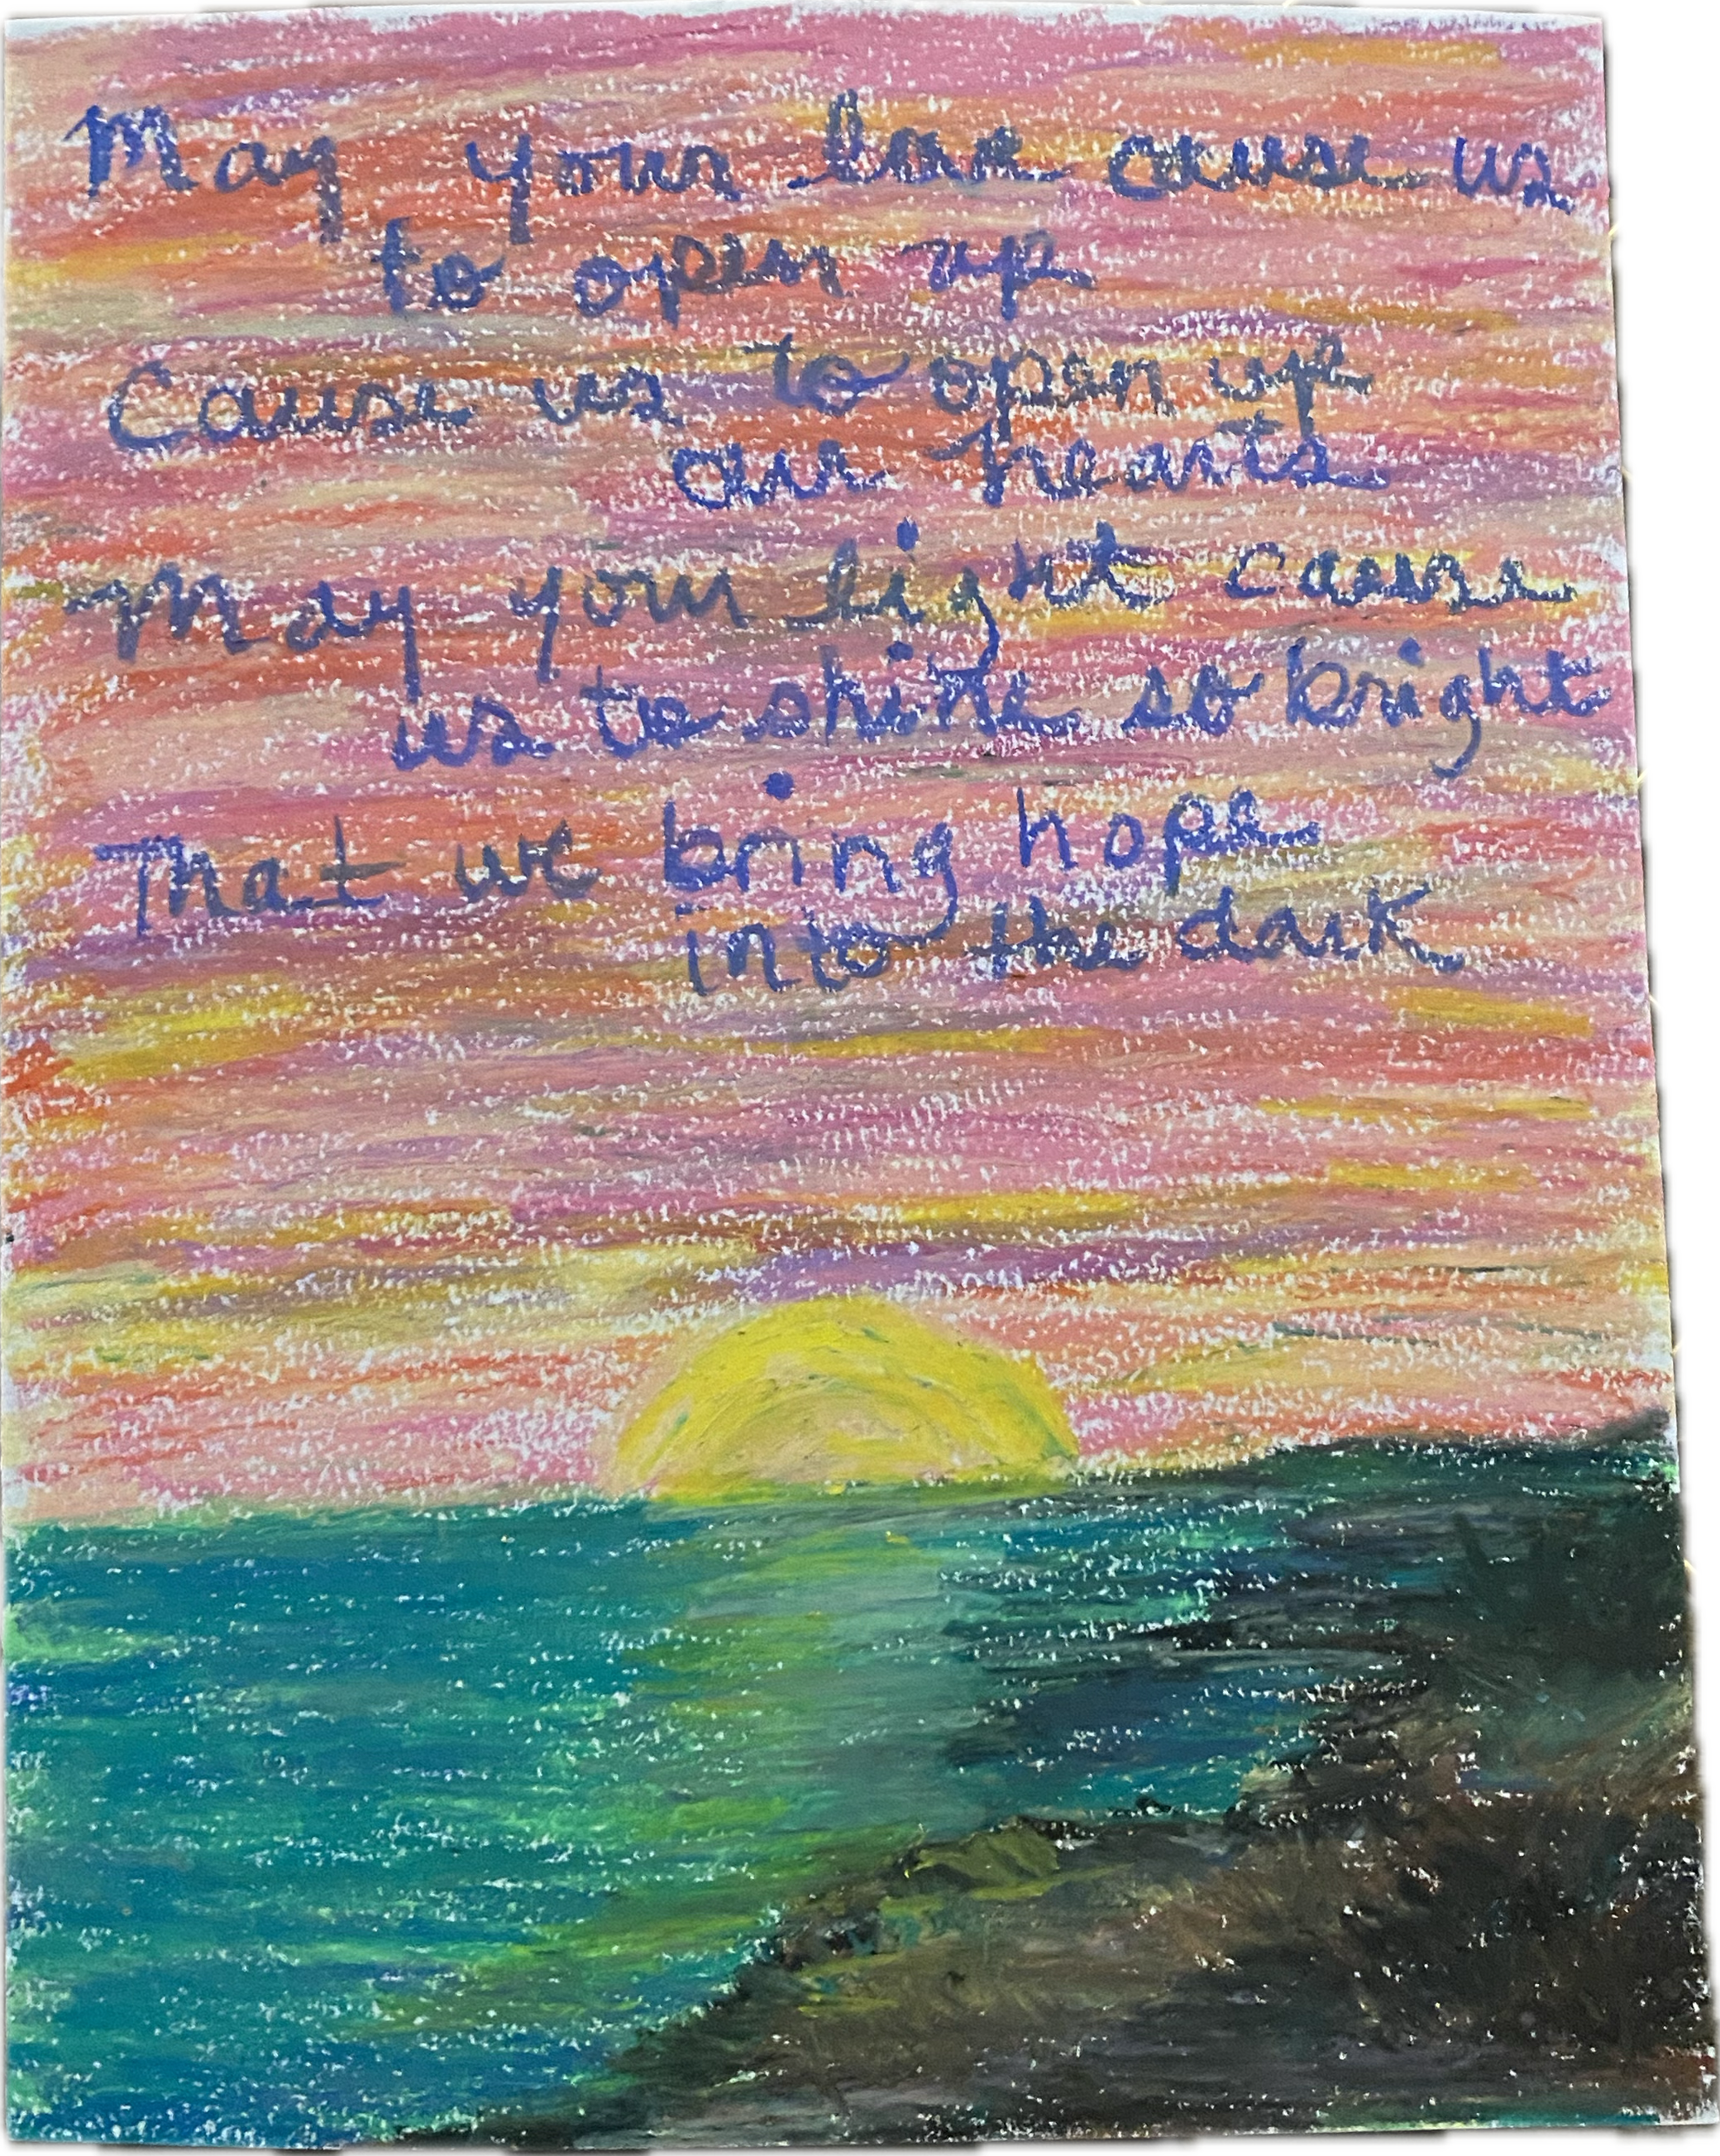 May your love cause us
to open up
Cause us to open up
our hearts
May your light cause
us to shine so bright
That we bring hope
into the dark